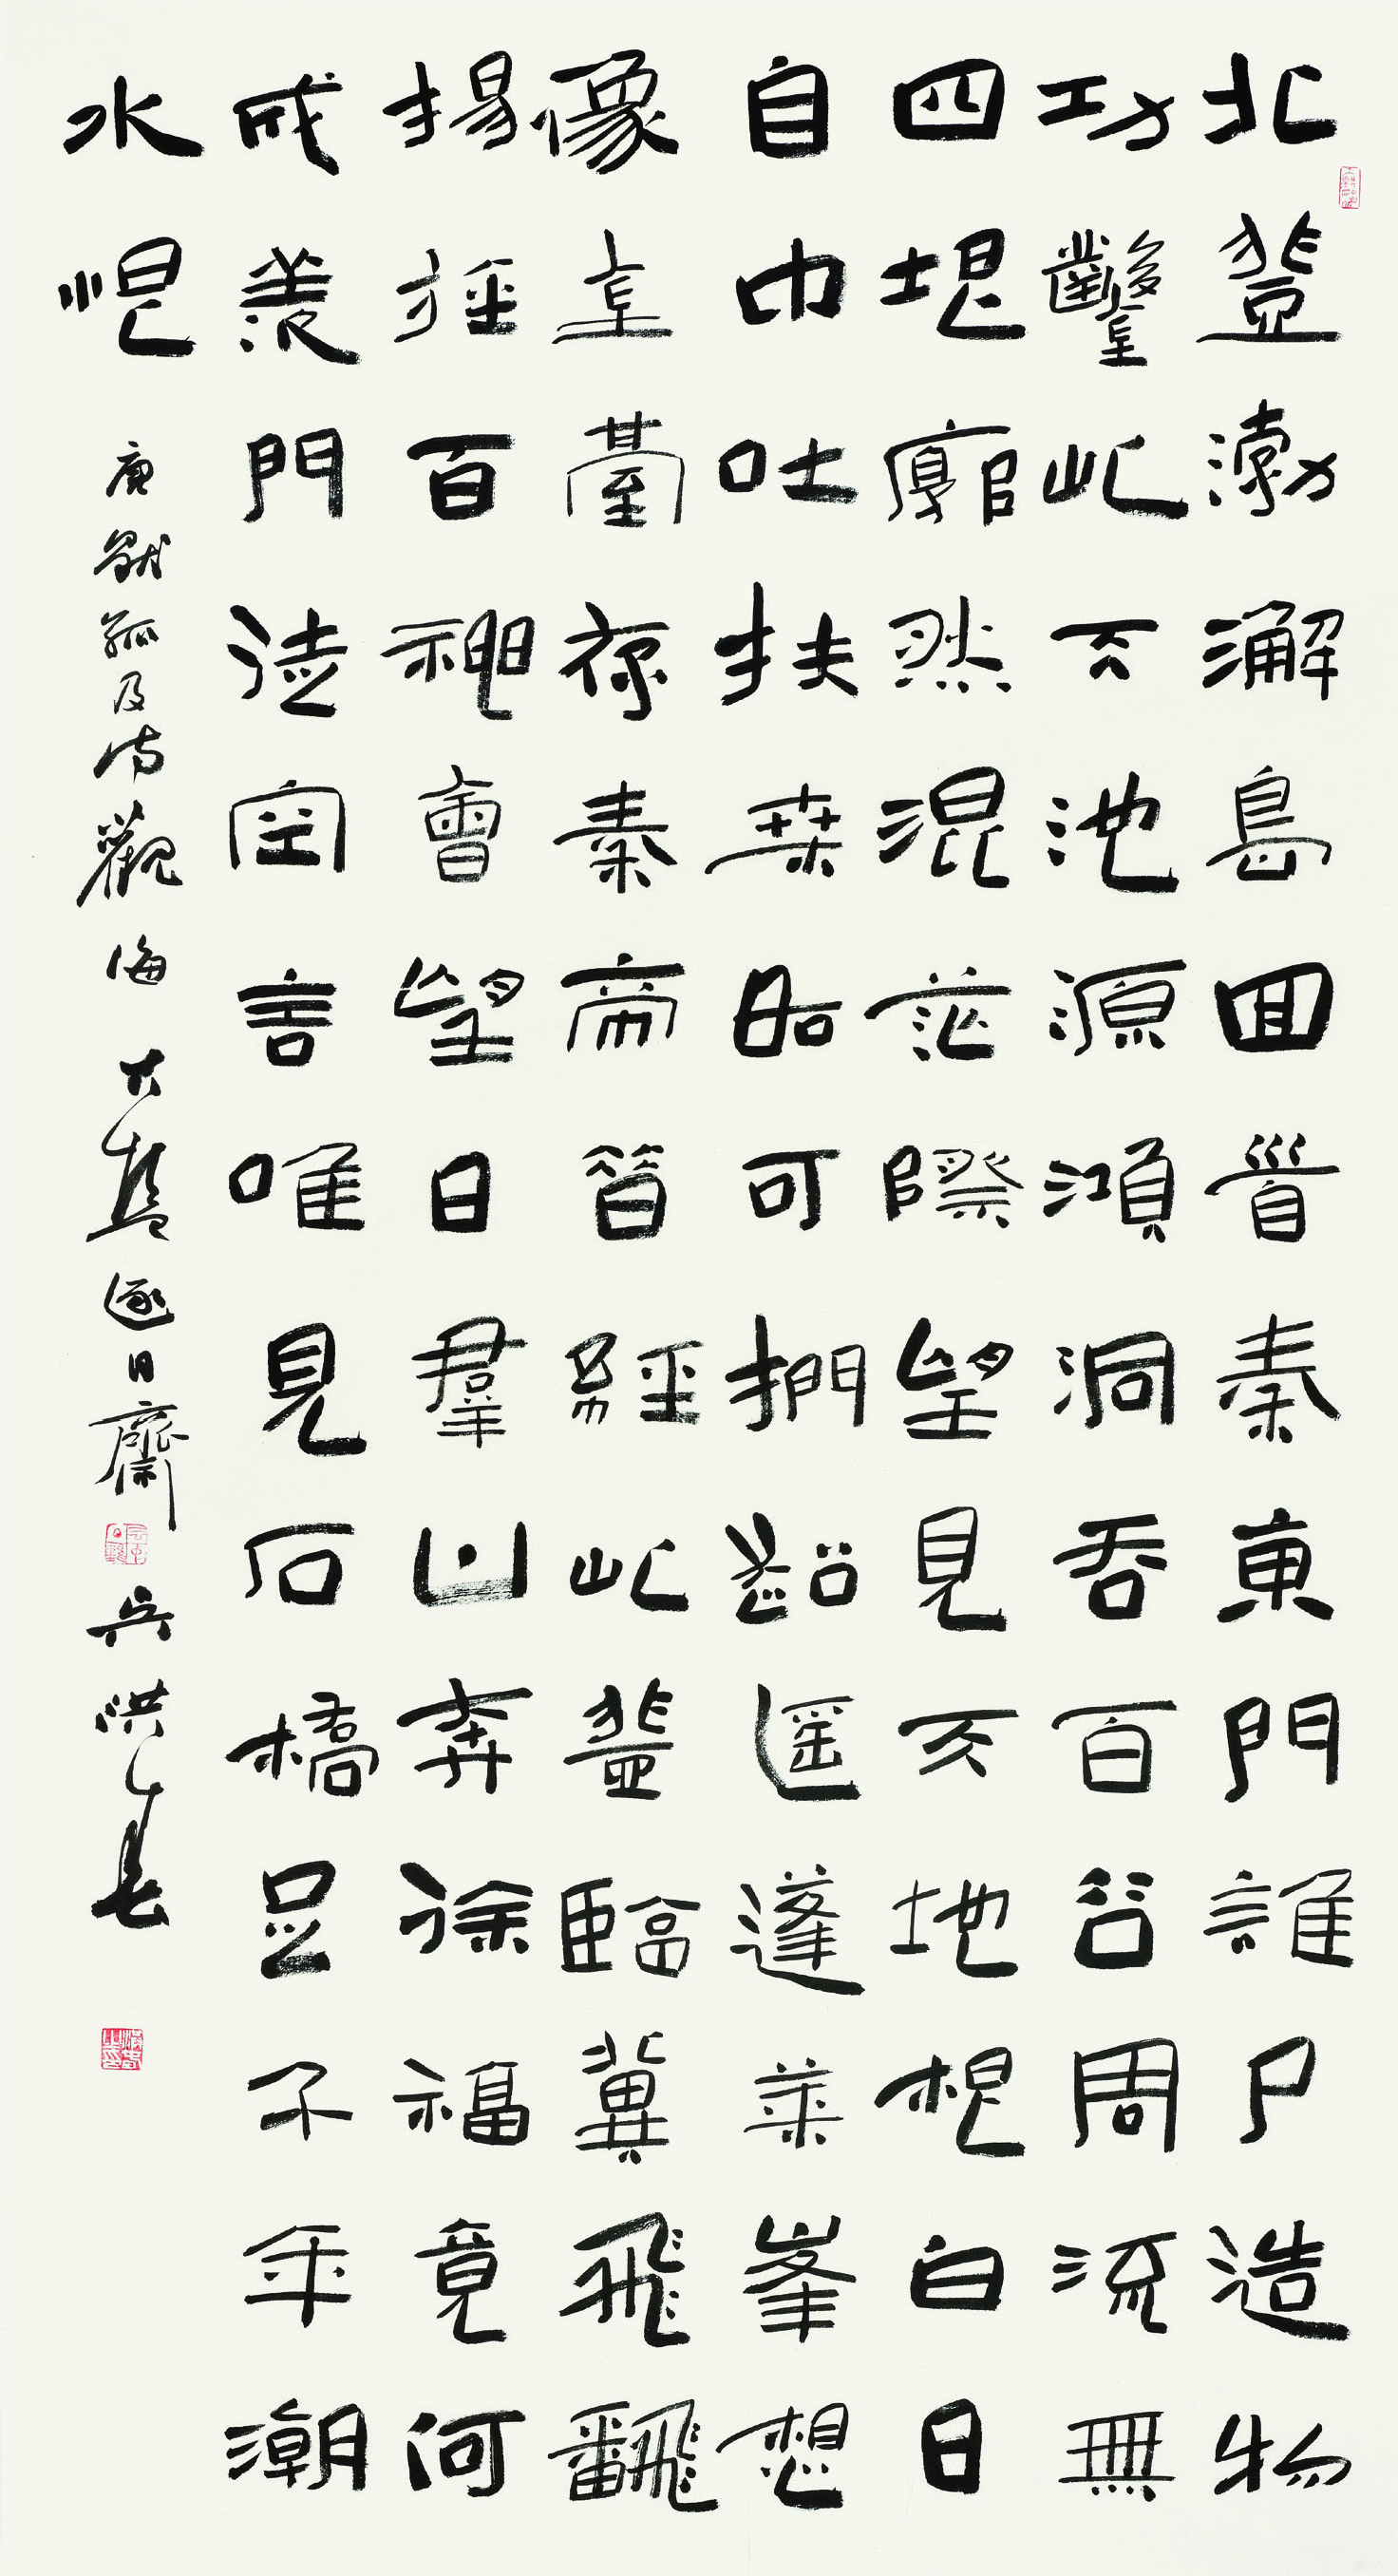 北登渤澥島回首秦東門誰尸造物
功鑿此天池源澒洞吞百谷周流無
四垠廓然混茫際望見天地根白日
自中吐扶桑如可捫超遙蓬萊峯想
像金臺存秦帝昔經此登臨冀飛飜
揚旌百神會望日羣山奔徐福竟何
成羨門徒空言唯見石橋足千年潮
水痕
唐獨孤及詩觀海 逐日齋 吳洪春